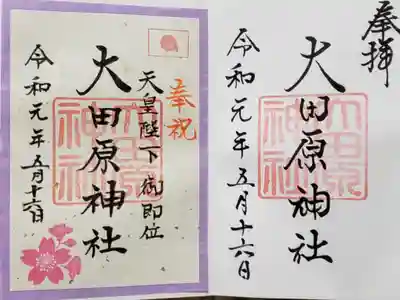 奉拝
大田原神社
令和元年五月十六日
大田原神社
奉祝
天皇陛下御即位
大田原神社
令和元年五月十六日
大田原神社